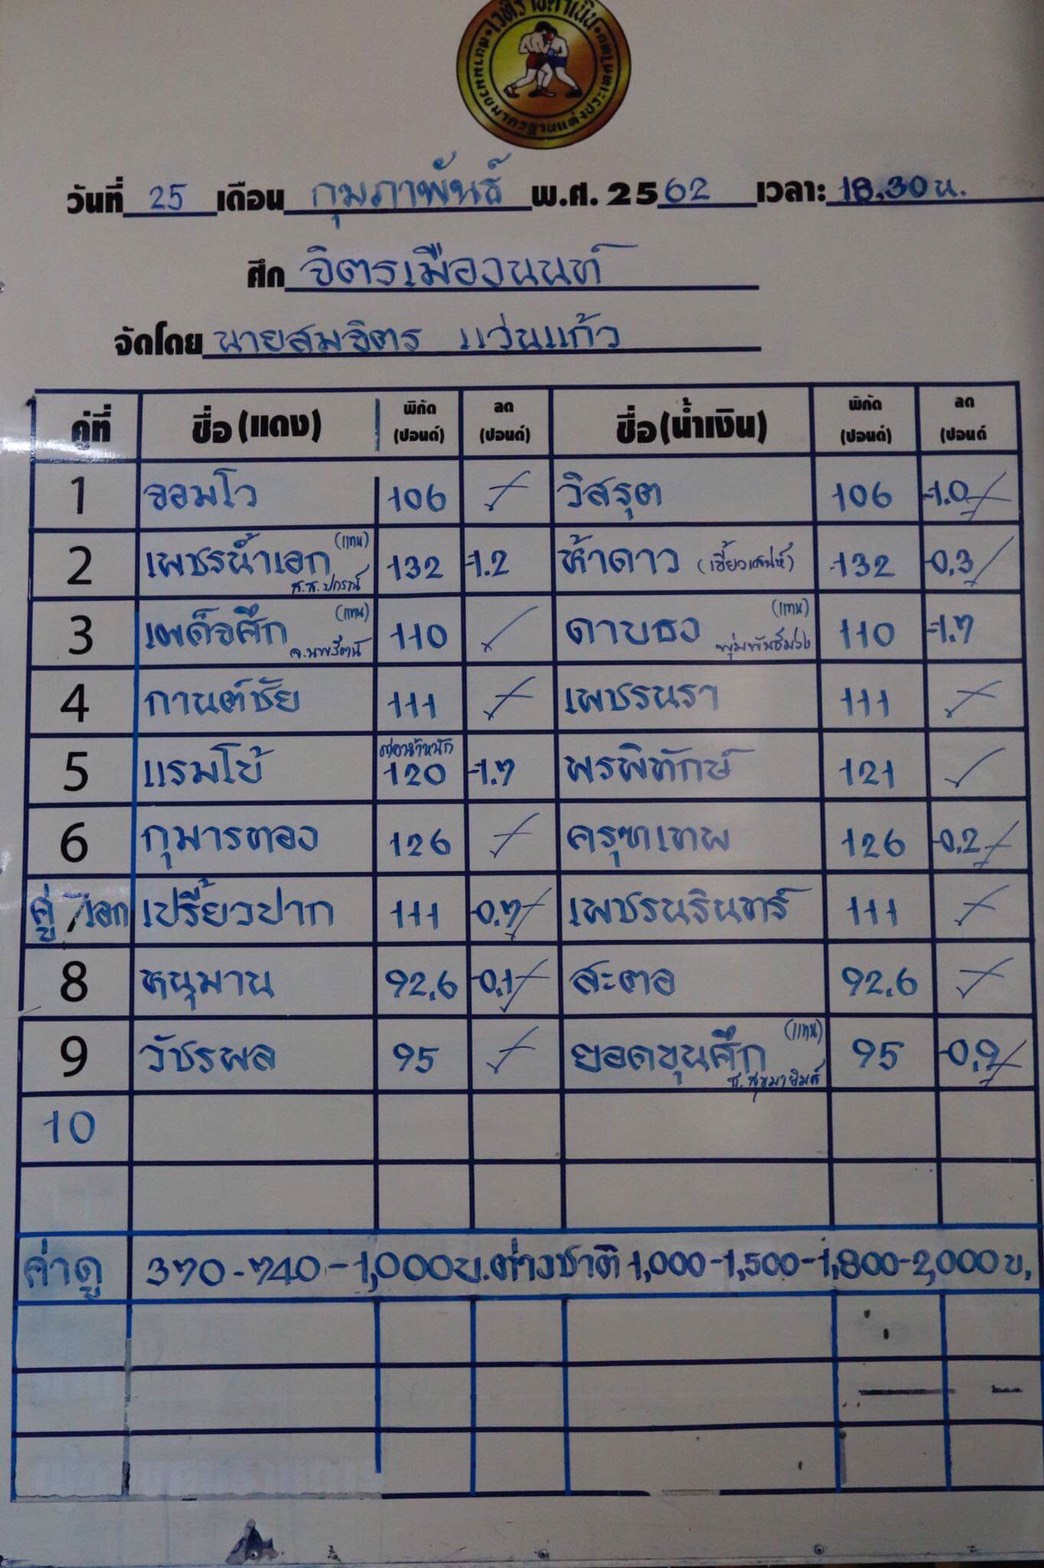 วันที่ 25 เดือน กุมภาพันธ์ พ.ศ. 2562 เวลา: 18.30 น.
ศึก จิตรเมืองนนท์
จัดโดย นายสมจิตร แว่นแก้ว
คู่ที่ ชื่อ (แดง) พิกัด (ปอนด์) ลด (ปอนด์) ชื่อ (น้ำเงิน) พิกัด (ปอนด์) ลด (ปอนด์
1 จอมโว 106 วิสรุต 106 -1.0
2 เพชรน้ำเอก (แทน) ส.ส.ปกรณ์ 132 -1.2 ห้าดาว 132 -0.3
3 เผด็จศึก (แทน) จ.นพรัตน์ 110 ดาบธง (แทน) 110 -1.7
4 กานต์ชัย 111 เพชรนรา 111
5 แรมโบ้ 120 -1.7 พรพิทักษ์ 121
6 กุมารทอง 126 ครุฑเทพ 126 -0.2
คู่ 7 เอก เปรี้ยวปาก 111 -0.7 เพชรนรินทร์ 111
8 หนุมาน 92.6 -0.1 สะตอ 92.6
9 วัชรพล 95 ยอดขุนศึก (แทน) 95 -0.9
10
ค่าดู 370-740-1,000บ. ต่างชาติ 1,000-1,500-1,800-2,000 บ.